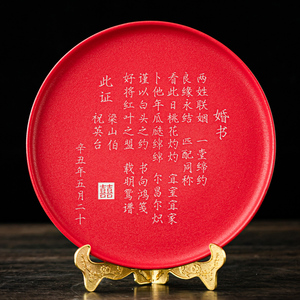 婚书
两姓联姻 一堂缔约
良缘永结 匹配同称
看此日桃花灼灼 宜室宜家
卜他年瓜瓞绵绵 尔昌尔炽
谨以白头之约 书向鸿笺
好将红叶之盟 载明鸳谱
此证
梁山伯
祝英台
辛丑年五月二十
囍